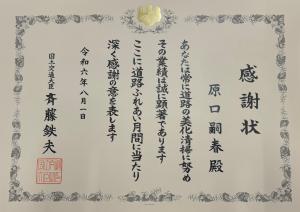 感謝状
原口嗣春殿
あなたは常に道路の美化清掃に努め
その業績は誠に顕著であります
ここに道路ふれあい月間に当たり
深く感謝の意を表します
令和六年八月一日
国土交通大臣 斉藤鉄夫